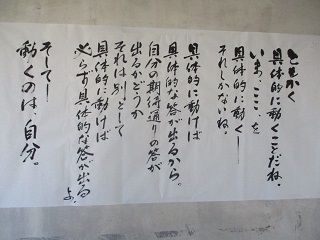 ともかく
具体的に動くことだね。
いま、ここ、を
具体的に動く―
それしかないね。
具体的に動けば
具体的な答が出るから。
自分の期待通りの答が
出るかどうか
それは別として
具体的に動けば
必らず具体的な答が出るよ。
そして―
動くのは、自分。